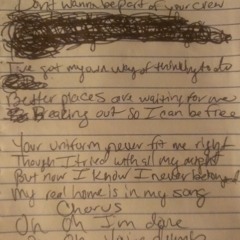 Don't wanna be part of your crew
I've got my own way of thinking to do
Better places are waiting for me
Breaking out so I can be free
Your uniform never fit me right
Though I tried with all my might
But now I know I never belonged
My real home is in my song
Chorus
Oh oh I'm done